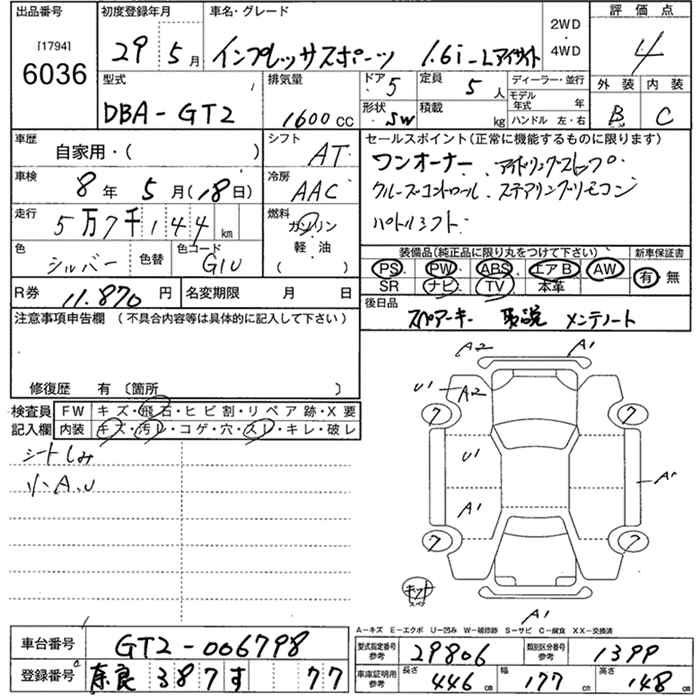 出品番号 初度登録年月 車名・グレード 2WD・4WD 評価点
[1794]
6036 29 5月 インプレッサスポーツ 1.6i-Lアイサイト 4
型式 排気量 ドア 5 定員 5人 ディーラー・並行 外装 内装
DBA-GT2 1600cc 形状 SW 積載 kg モデル年式 年 ハンドル 左・右 B C
車歴 自家用・( ) シフト AT セールスポイント(正常に機能するものに限ります)
車検 8年 5月(18日) 冷房 AAC ワンオーナー アイドリングストップ
走行 5万7千144km 燃料 ガソリン クルーズコントロール ステアリングリモコン
軽油 パドルシフト
色 シルバー 色替 色コード G1U ( )
装備品(純正品に限り丸をつけて下さい) 新車保証書
PS PW ABS エアB AW 有 無
SR ナビ TV 本革
R券 11,870円 名変期限 月 日
後日品 スペアーキー 取説 メンテノート
注意事項申告欄 (不具合内容等は具体的に記入して下さい)
修復歴 有〔箇所 〕
検査員 FW キズ・飛石・ヒビ割・リペア跡・X要
記入欄 内装 キズ・汚レ・コゲ・穴・スレ・キレ・破レ
シートしみ
小A.U
A2 A1
U1 A2
ワ ワ
U1
A1 A1
ワ ワ
キット
スペア
A1
A－キズ E－エクボ U－凹み W－補修跡 S－サビ C－腐食 XX－交換済
車台番号 GT2-006798 型式指定番号 参考 29806 類別区分番号 参考 1399
登録番号 奈良 387 す 77 車庫証明用 参考 長さ 446cm 幅 177cm 高さ 148cm